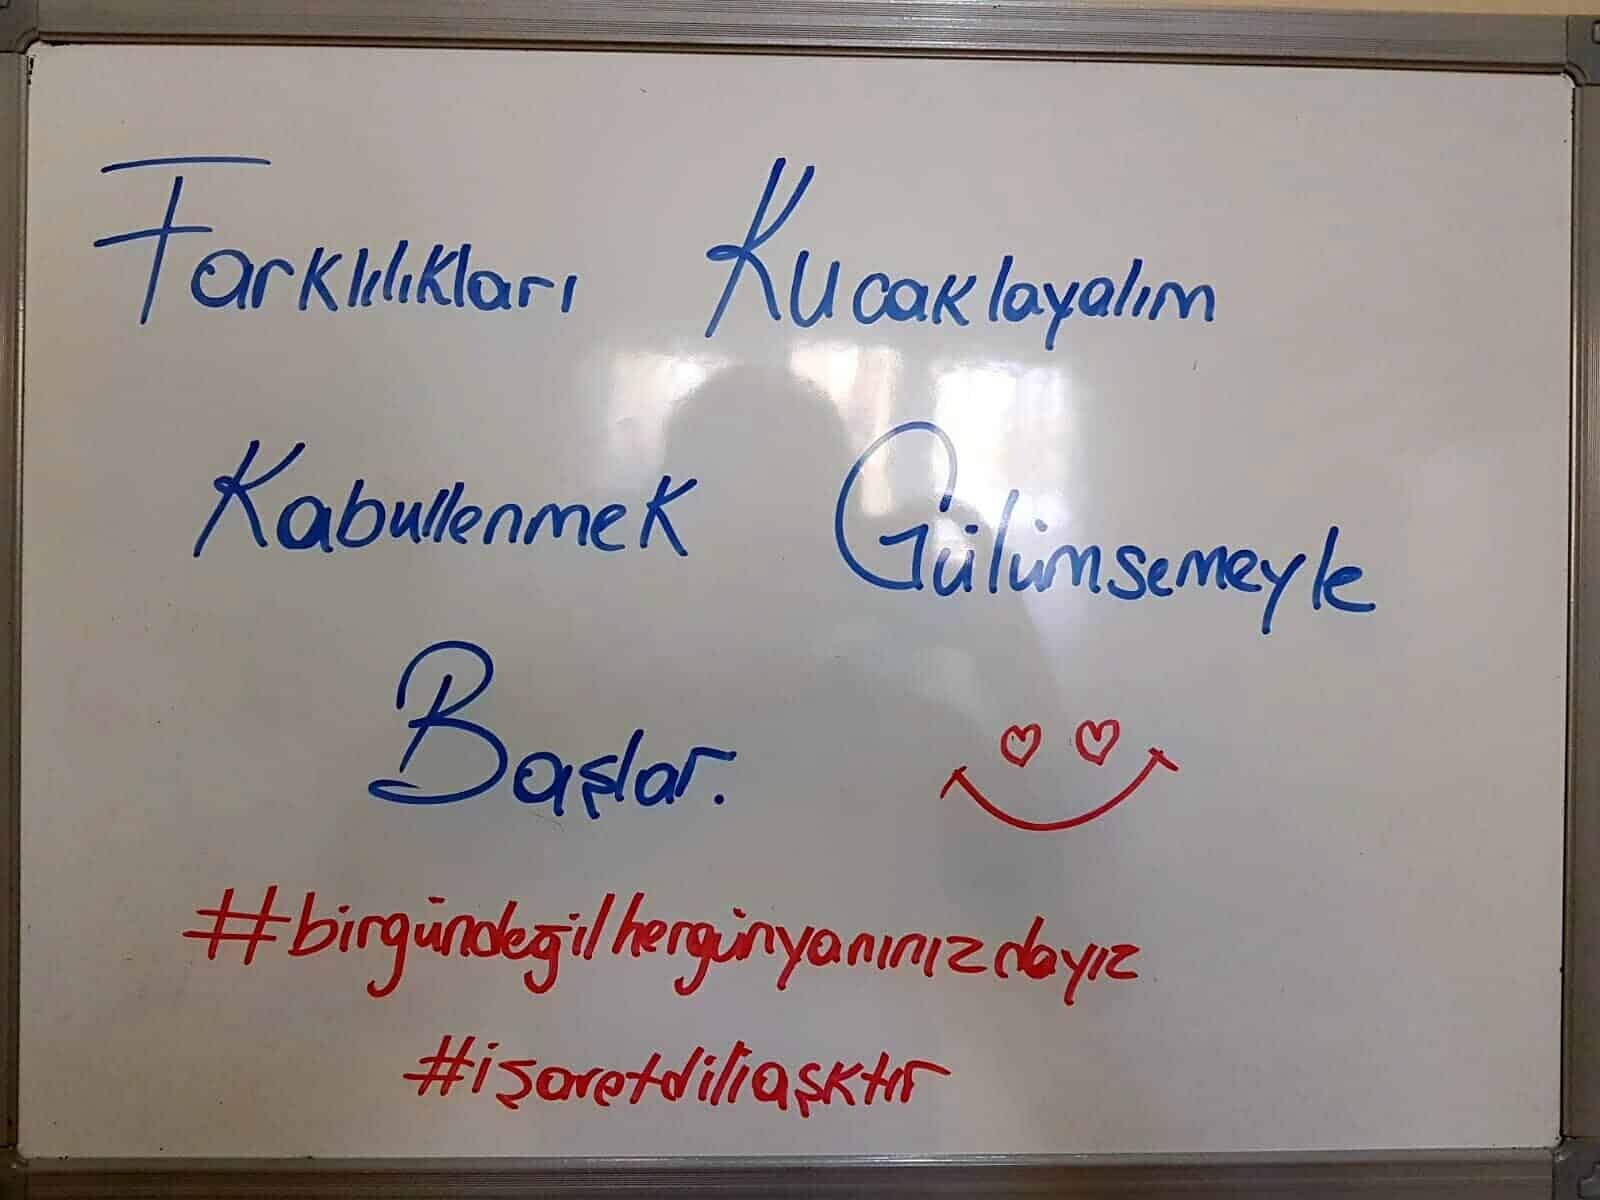 Farklılıkları Kucaklayalım
Kabullenmek Gülümsemeyle
Başlar.
#birgündeğilhergünyanınızdayız
#işaretdiliaşktır